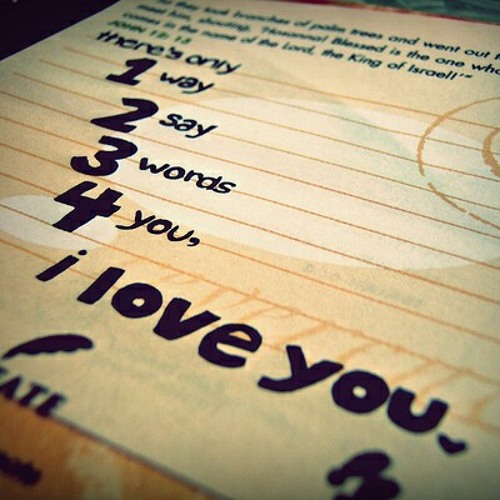 they took branches of palm trees and went out
him, shouting, "Hosanna! Blessed is the one who
comes in the name of the Lord, the King of Israel!"
JOHN 12:13
there's only
1 way
2 say
3 words
4 you,
i love you.